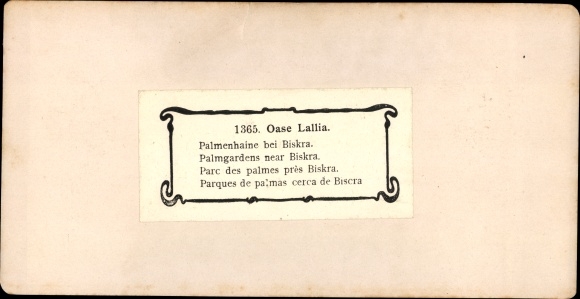 1365. Oase Lallia.
Palmenhaine bei Biskra.
Palmgardens near Biskra.
Parc des palmes près Biskra.
Parques de palmas cerca de Biscra